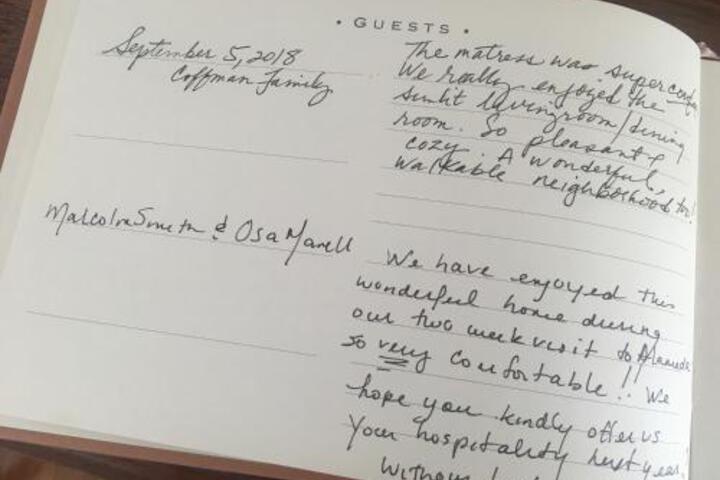 • GUESTS •
September 5, 2018
Coffman Family
The matress was super
We really enjoyed the
sunlit livingroom/dining
room. So pleasant &
cozy. A wonderful,
walkable neighborhood too!
Malcolm Smith & Osa
We have enjoyed this
wonderful home during
our two week visit to Alameda
so very comfortable!! We
hope you kindly offer us
your hospitality next year.